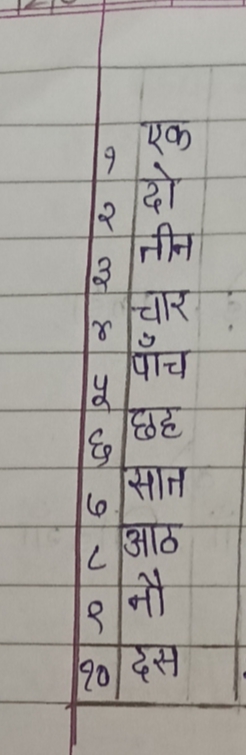 १ एक
२ दो
३ तीन
४ चार
५ पाँच
६ छह
७ सात
८ आठ
९ नौ
१० दस